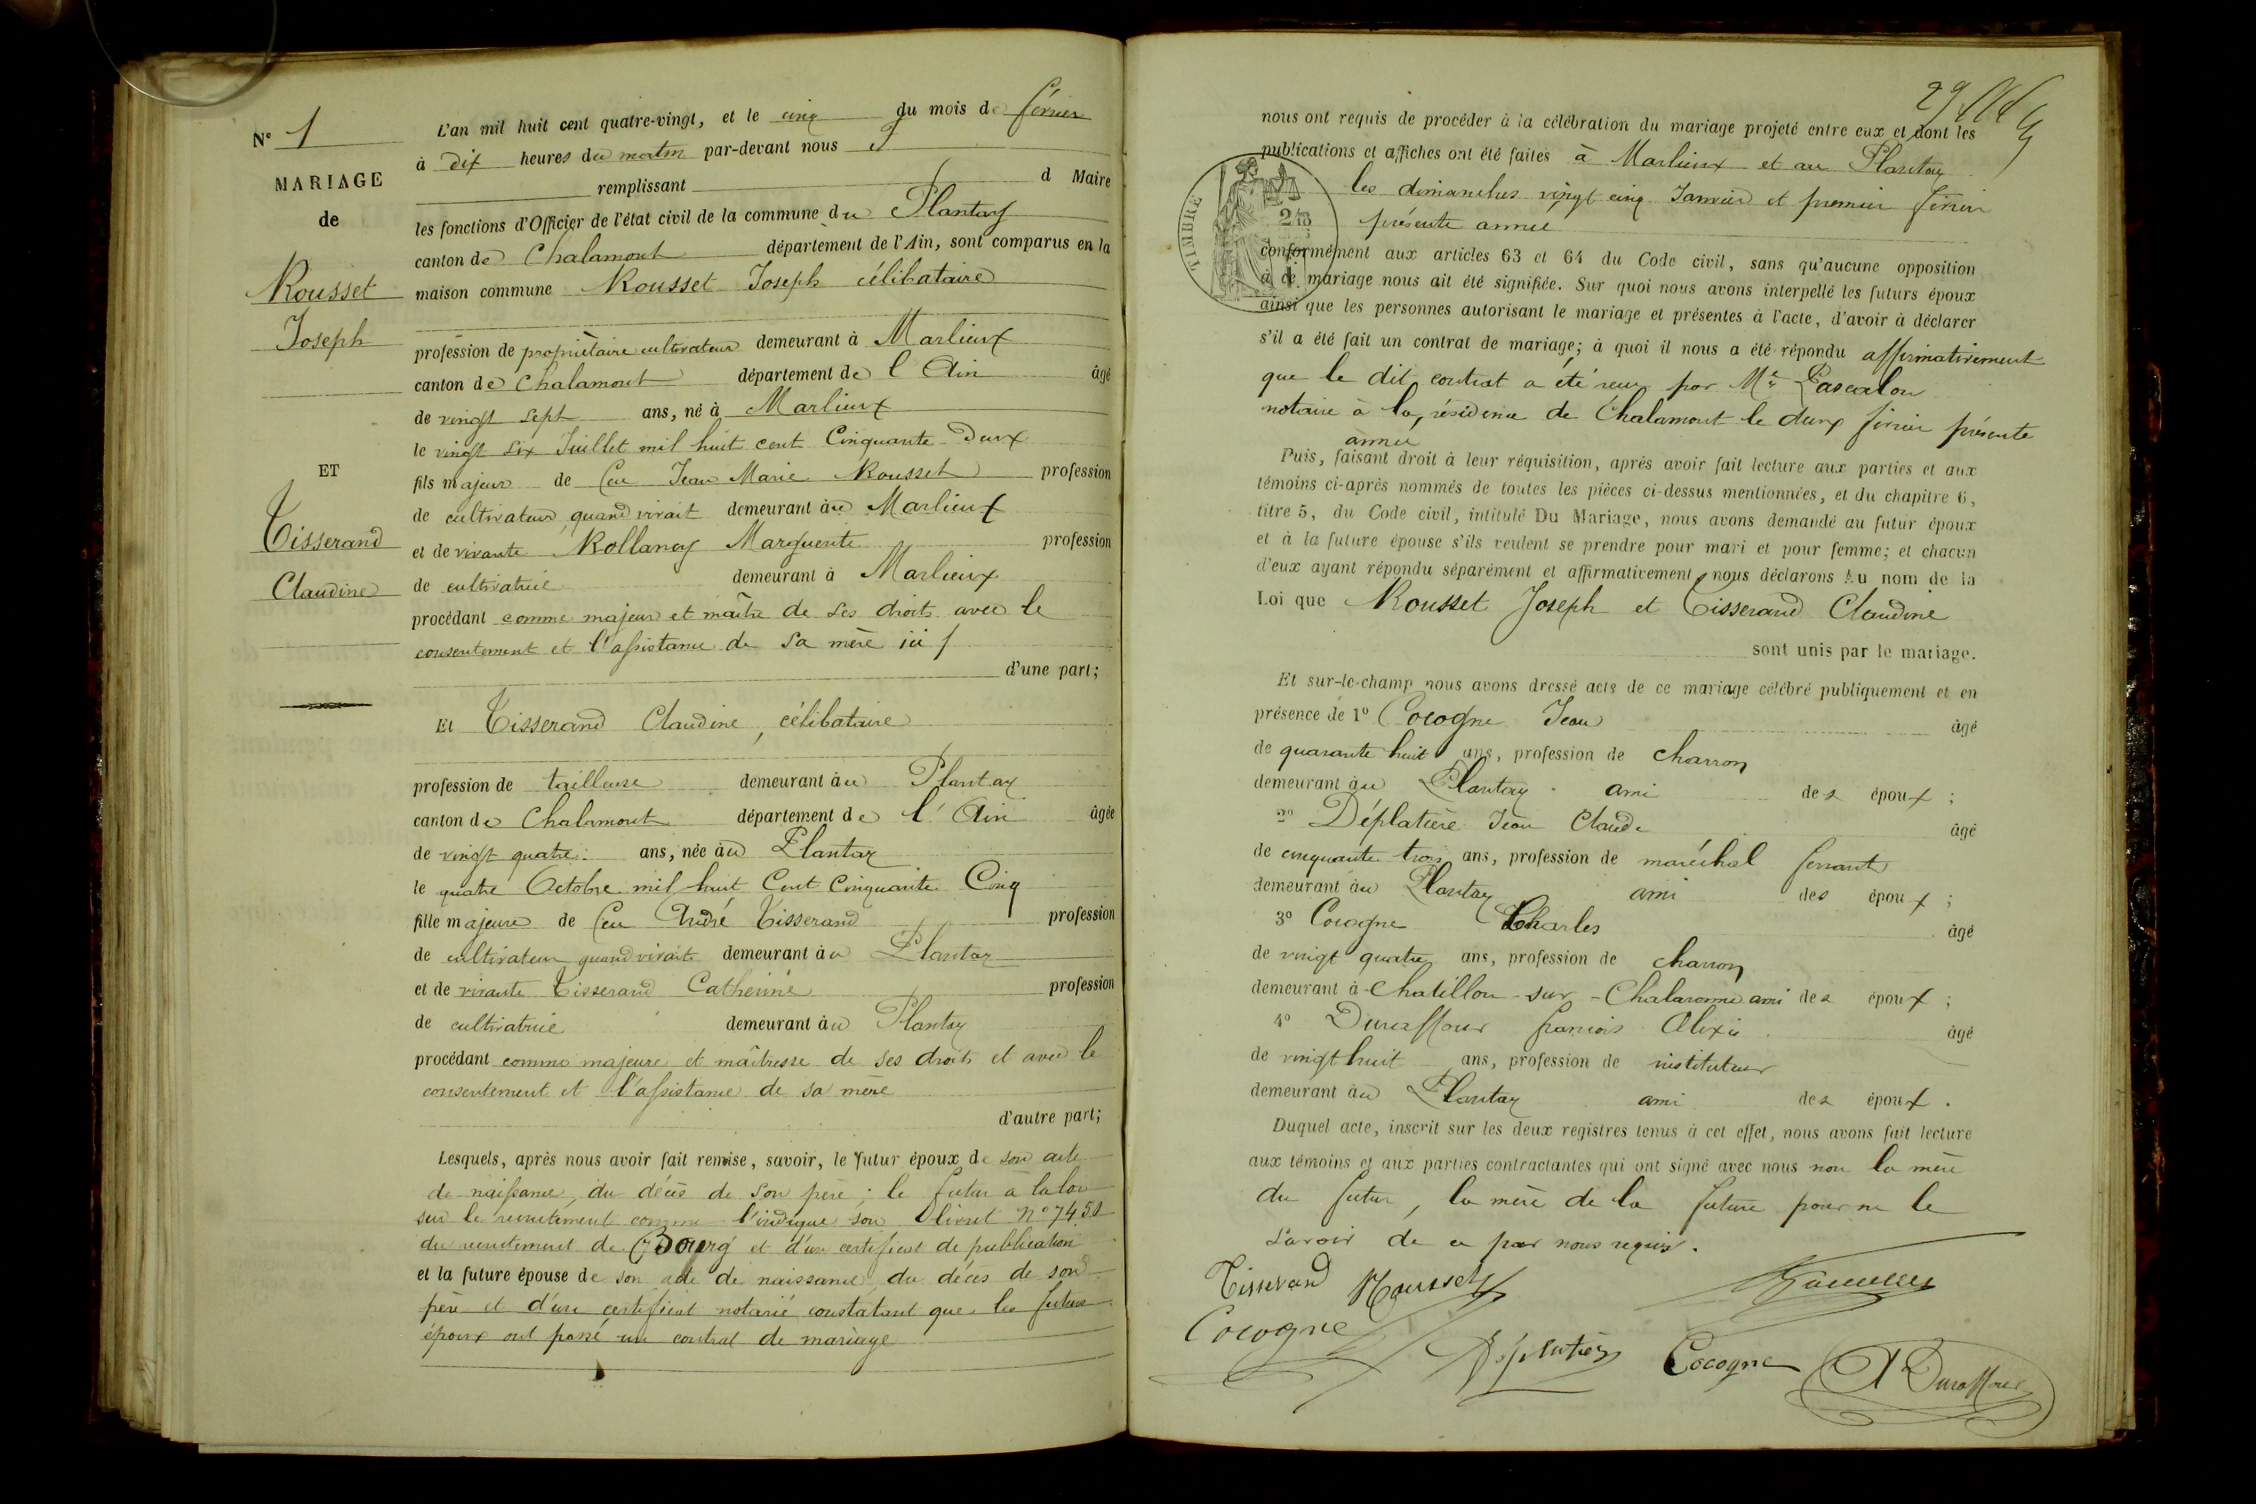 N° 1
MARIAGE
de
Rousset
Joseph
ET
Tisserand
Claudine
L'an mil huit cent quatre-vingt, et le cinq du mois de février
à dix heures du matin par-devant nous
remplissant d Maire
les fonctions d'Officier de l'état civil de la commune du Plantay
canton de Chalamont département de l'Ain, sont comparus en la
maison commune Rousset Joseph célibataire
profession de propriètaire cultivateur demeurant à Marlieux
canton de Chalamont département de l'Ain âgé
de vingt sept ans, né à Marlieux
le vingt six Juillet mil huit cent Cinquante Deux
fils majeur de feu Jean Marie Rousset profession
de cultivateur quand vivait demeurant au Marlieux
et de vivante Rollancy Marguerite profession
de cultivatrice demeurant à Marlieux
procédant comme majeur et maître de ses droits avec le
consentement et l'assistance de sa mère ici
d'une part;
Et Tisserand Claudine, célibataire
profession de tailleuse demeurant au Plantay
canton de Chalamont département de l'Ain âgée
de vingt quatre ans, née au Plantay
le quatre Octobre mil huit Cent Cinquante Cinq
fille majeure de feu André Tisserand profession
de cultivateur quand vivait demeurant au Plantay
et de vivante Tisserand Catherine profession
de cultivatrice demeurant au Plantay
procédant comme majeure et maîtresse de ses droits et avec le
consentement et l'assistance de sa mère
d'autre part;
Lesquels, après nous avoir fait remise, savoir, le futur époux de son acte
de naissance, du décès de son père; le futur a la loi
sur le recrutement comme l'indique son livret N° 7451
du recrutement de Bourg et d'un certificat de publication
et la future épouse de son acte de naissance du décès de son
père et d'un certificat notarié constatant que les futurs
époux ont passé un contrat de mariage
nous ont requis de procéder à la célébration du mariage projeté entre eux et dont les
publications et affiches ont été faites à Marlieux et au Plantay
les dimanches vingt cinq Janvier et premier février
présente année
TIMBRE
conformément aux articles 63 et 64 du Code civil, sans qu'aucune opposition
à ce mariage nous ait été signifiée. Sur quoi nous avons interpellé les futurs époux
ainsi que les personnes autorisant le mariage et présentes à l'acte, d'avoir à déclarer
s'il a été fait un contrat de mariage; à quoi il nous a été répondu affirmativement
que le dit contrat a été reçu par Me Pascalon
notaire à la résidence de Chalamont le deux février présente
année
Puis, faisant droit à leur réquisition, après avoir fait lecture aux parties et aux
témoins ci-après nommés de toutes les pièces ci-dessus mentionnées, et du chapitre 6,
titre 5, du Code civil, intitulé Du Mariage, nous avons demandé au futur époux
et à la future épouse s'ils veulent se prendre pour mari et pour femme; et chacun
d'eux ayant répondu séparément et affirmativement, nous déclarons au nom de la
Loi que Rousset Joseph et Tisserand Claudine
sont unis par le mariage.
Et sur-le-champ nous avons dressé acte de ce mariage célébré publiquement et en
présence de 1° Cocogne Jean âgé
de quarante huit ans, profession de charron
demeurant au Plantay ami des époux;
2° Déplatière Jean Claude âgé
de cinquante trois ans, profession de maréchal ferrant
demeurant au Plantay ami des époux;
3° Cocogne Charles âgé
de vingt quatre ans, profession de charron
demeurant à Chatillon-sur-Chalaronne ami des époux;
4° Duraffour françois Alexis âgé
de vingt huit ans, profession de instituteur
demeurant au Plantay ami des époux.
Duquel acte, inscrit sur les deux registres tenus à cet effet, nous avons fait lecture
aux témoins et aux parties contractantes qui ont signé avec nous non la mère
du futur, la mère de la future pour ne le
savoir de ce par nous requis.
Tisserand Rousset
Cocogne Déplatière Cocogne A Duraffour